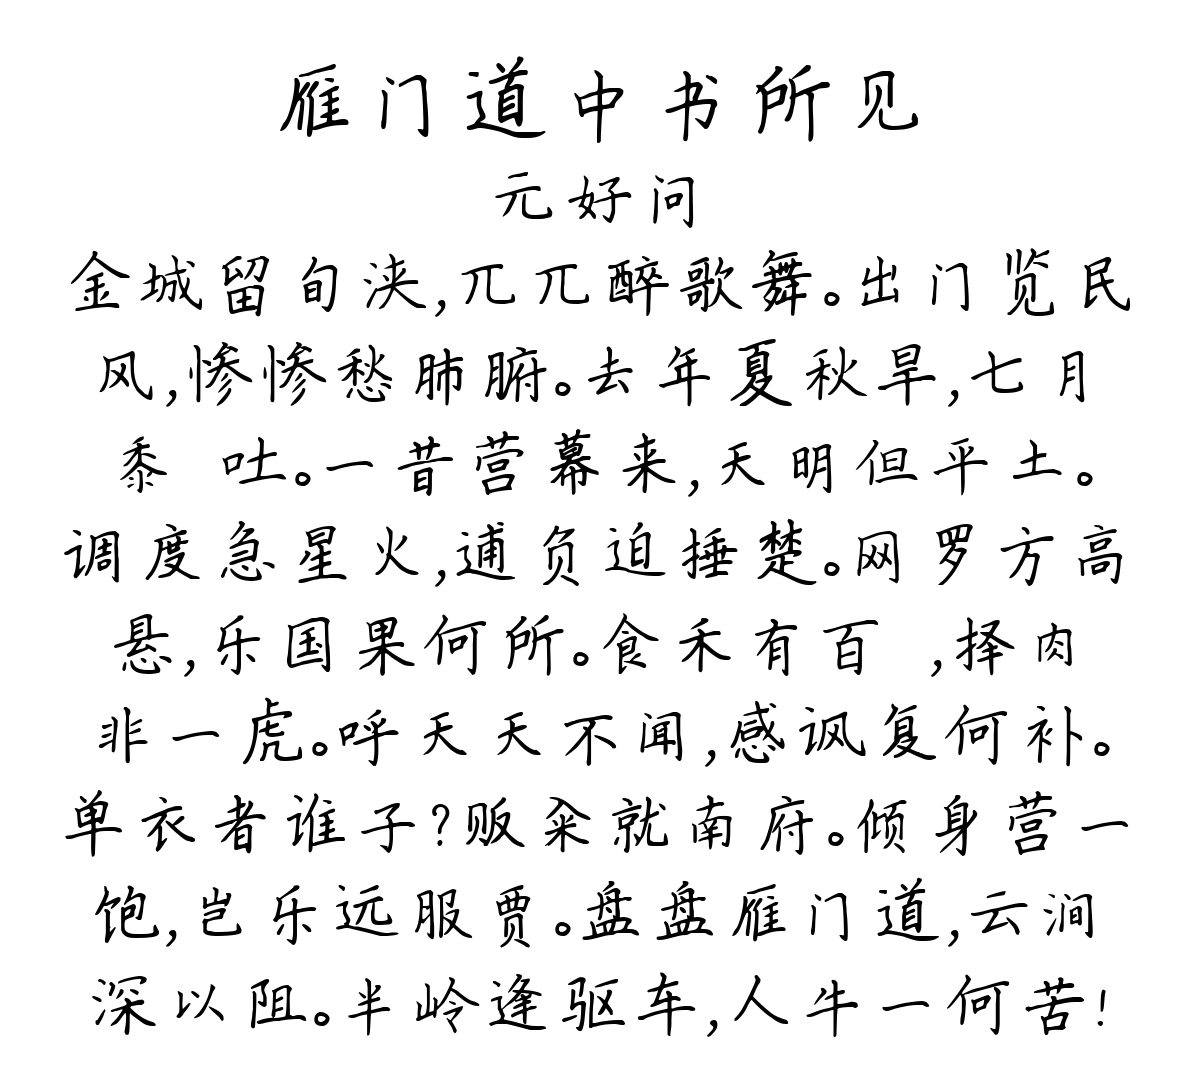 雁门道中书所见
元好问
金城留旬浃,兀兀醉歌舞。出门览民
风,惨惨愁肺腑。去年夏秋旱,七月
黍 吐。一昔营幕来,天明但平土。
调度急星火,逋负迫捶楚。网罗方高
悬,乐国果何所。食禾有百 ,择肉
非一虎。呼天天不闻,感讽复何补。
单衣者谁子?贩籴就南府。倾身营一
饱,岂乐远服贾。盘盘雁门道,云涧
深以阻。半岭逢驱车,人牛一何苦!